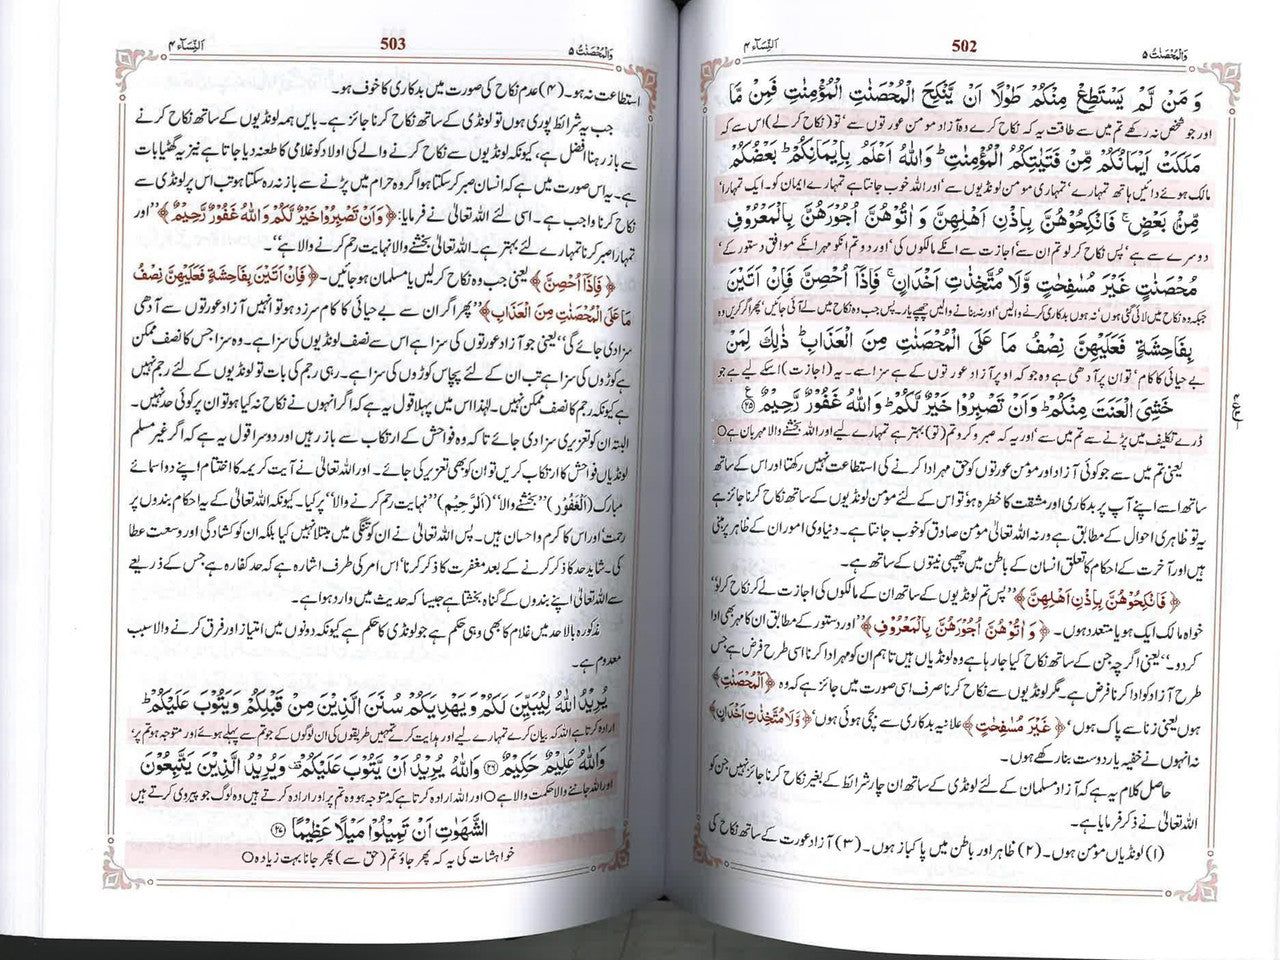 وَالْمُحْصَنٰتُ ۵
502
اَلنِّسَآء ۴
وَ مَنْ لَّمْ يَسْتَطِعْ مِنْكُمْ طَوْلًا اَنْ يَّنْكِحَ الْمُحْصَنٰتِ الْمُؤْمِنٰتِ فَمِنْ مَّا
اور جو شخص نہ رکھے تم میں سے طاقت یہ کہ نکاح کرے وہ آزاد مومن عورتوں سے‘ تو (نکاح کرلے) اس سے کہ
مَلَكَتْ اَيْمَانُكُمْ مِّنْ فَتَيٰتِكُمُ الْمُؤْمِنٰتِ ؕ وَاللّٰهُ اَعْلَمُ بِاِيْمَانِكُمْ ؕ بَعْضُكُمْ
مالک ہوئے دائیں ہاتھ تمہارے‘ تمہاری مومن لونڈیوں سے‘ اور اللہ خوب جانتا ہے تمہارے ایمان کو۔ ایک تمہارا‘
مِّنْ بَعْضٍ ۚ فَانْكِحُوْهُنَّ بِاِذْنِ اَهْلِهِنَّ وَ اٰتُوْهُنَّ اُجُوْرَهُنَّ بِالْمَعْرُوْفِ
دوسرے سے ہے‘ پس نکاح کر لو تم ان سے‘ اجازت سے انکے مالکوں کی‘ اور دو تم انکو مہر انکے موافق دستور کے‘
مُحْصَنٰتٍ غَيْرَ مُسٰفِحٰتٍ وَّلَا مُتَّخِذٰتِ اَخْدَانٍ ۚ فَاِذَآ اُحْصِنَّ فَاِنْ اَتَيْنَ
جبکہ وہ نکاح میں لائی گئی ہوں‘ نہ ہوں بدکاری کرنے والیں‘ اور نہ بنانے والیں چھپے یار۔ پس جب وہ نکاح میں لے آئی جائیں‘ پھر اگر کریں وہ
بِفَاحِشَةٍ فَعَلَيْهِنَّ نِصْفُ مَا عَلَى الْمُحْصَنٰتِ مِنَ الْعَذَابِ ؕ ذٰلِكَ لِمَنْ
بے حیائی کا کام‘ تو ان پر آدھی ہے وہ جو کہ اوپر آزاد عورتوں کے ہے سزا سے۔ یہ (اجازت) اسکے لیے ہے جو
خَشِىَ الْعَنَتَ مِنْكُمْ ؕ وَ اَنْ تَصْبِرُوْا خَيْرٌ لَّكُمْ ؕ وَ اللّٰهُ غَفُوْرٌ رَّحِيْمٌ ۟۲۵
ڈرے تکلیف میں پڑنے سے تم میں سے‘ اور یہ کہ صبر کرو تم (تو) بہتر ہے تمہارے لیے اور اللہ بخشنے والا مہربان ہے○
یعنی تم میں سے جو کوئی آزاد اور مؤمن عورتوں کو حق مہر ادا کرنے کی استطاعت نہیں رکھتا اور اس کے ساتھ
ساتھ اسے اپنے آپ پر بدکاری اور مشقت کا خطرہ ہو تو اس کے لئے مؤمن لونڈیوں کے ساتھ نکاح کرنا جائز ہے
یہ تو ظاہری احوال کے مطابق ہے ورنہ اللہ تعالیٰ مؤمن صادق کو خوب جانتا ہے۔ دنیاوی امور ان کے ظاہر پر مبنی
ہیں اور آخرت کے احکام کا تعلق انسان کے باطن میں چھپی نیتوں کے ساتھ ہے۔
﴿ فَانْكِحُوْهُنَّ بِاِذْنِ اَهْلِهِنَّ ﴾ ”پس تم لونڈیوں کے ساتھ ان کے مالکوں کی اجازت لے کر نکاح کرلو“
خواہ مالک ایک ہو یا متعدد ہوں۔ ﴿ وَ اٰتُوْهُنَّ اُجُوْرَهُنَّ بِالْمَعْرُوْفِ ﴾ ”اور دستور کے مطابق ان کا مہر بھی ادا
کر دو۔“ یعنی اگرچہ جن کے ساتھ نکاح کیا جا رہا ہے وہ لونڈیاں ہیں تاہم ان کو مہر ادا کرنا اسی طرح فرض ہے جس
طرح آزاد کو ادا کرنا فرض ہے۔ مگر لونڈیوں سے نکاح کرنا صرف اسی صورت میں جائز ہے کہ وہ ﴿ اَلْمُحْصَنٰتِ ﴾
ہوں یعنی زنا سے پاک ہوں‘ ﴿ غَيْرَ مُسٰفِحٰتٍ ﴾ علانیہ بدکاری سے بچی ہوئی ہوں‘ ﴿ وَلَا مُتَّخِذٰتِ اَخْدَانٍ ﴾
نہ انہوں نے خفیہ یار دوست بنا رکھے ہوں۔
حاصل کلام یہ ہے کہ آزاد مسلمان کے لئے لونڈی کے ساتھ ان چار شرائط کے بغیر نکاح کرنا جائز نہیں جن کو
اللہ تعالیٰ نے ذکر فرمایا ہے۔
(۱) لونڈیاں مؤمن ہوں۔ (۲) ظاہر اور باطن میں پاکباز ہوں۔ (۳) آزاد عورت کے ساتھ نکاح کی
وَالْمُحْصَنٰتُ ۵
503
اَلنِّسَآء ۴
استطاعت نہ ہو۔ (۴) عدم نکاح کی صورت میں بدکاری کا خوف ہو۔
جب یہ شرائط پوری ہوں تو لونڈی کے ساتھ نکاح کرنا جائز ہے۔ بایں ہمہ لونڈیوں کے ساتھ نکاح کرنے
سے باز رہنا افضل ہے، کیونکہ لونڈیوں سے نکاح کرنے والے کی اولاد کو غلامی کا طعنہ دیا جاتا ہے نیز یہ گھٹیا بات
ہے۔ یہ اس صورت میں ہے کہ انسان صبر کر سکتا ہو اگر وہ حرام میں پڑنے سے باز نہ رہ سکتا ہو تب اس پر لونڈی سے
نکاح کرنا واجب ہے۔ اسی لئے اللہ تعالیٰ نے فرمایا: ﴿ وَاَنْ تَصْبِرُوْا خَيْرٌ لَّكُمْ وَاللّٰهُ غَفُوْرٌ رَّحِيْمٌ ﴾ ”اور
تمہارا صبر کرنا تمہارے لئے بہتر ہے۔ اللہ تعالیٰ بخشنے والا نہایت رحم کرنے والا ہے“۔
﴿ فَاِذَآ اُحْصِنَّ ﴾ یعنی جب وہ نکاح کرلیں یا مسلمان ہو جائیں۔ ﴿ فَاِنْ اَتَيْنَ بِفَاحِشَةٍ فَعَلَيْهِنَّ نِصْفُ
مَا عَلَى الْمُحْصَنٰتِ مِنَ الْعَذَابِ ﴾ ”پھر اگر ان سے بے حیائی کا کام سرزد ہو تو انہیں آزاد عورتوں سے آدھی
سزا دی جائے گی“ یعنی جو آزاد عورتوں کی سزا ہے اس سے نصف لونڈیوں کی سزا ہے۔ وہ سزا جس کا نصف ممکن
ہے کوڑوں کی سزا ہے تب ان کے لئے پچاس کوڑوں کی سزا ہے۔ رہی رجم کی بات تو لونڈیوں کے لئے رجم نہیں
ہے کیونکہ رجم کا نصف ممکن نہیں۔ لہٰذا اس میں پہلا قول یہ ہے کہ اگر انہوں نے نکاح نہ کیا ہو تو ان پر کوئی حد نہیں۔
البتہ ان کو تعزیری سزا دی جائے تاکہ وہ فواحش کے ارتکاب سے باز رہیں اور دوسرا قول یہ ہے کہ اگر غیر مسلم
لونڈیاں فواحش کا ارتکاب کریں تو ان کو بھی تعزیر کی جائے۔ اور اللہ تعالیٰ نے آیت کریمہ کا اختتام اپنے دو اسمائے
مبارک (اَلْغَفُوْرُ) ”بخشنے والا“ (اَلرَّحِيْمُ) ”نہایت رحم کرنے والا“ پر کیا۔ کیونکہ اللہ تعالیٰ کے یہ احکام بندوں پر
رحمت‘ اور اس کا کرم و احسان ہیں۔ پس اللہ تعالیٰ نے ان کو تنگی میں مبتلا نہیں کیا بلکہ ان کو کشادگی اور وسعت عطا
کی۔ شاید حد کا ذکر کرنے کے بعد مغفرت کا ذکر کرنا‘ اس امر کی طرف اشارہ ہے کہ حد کفارہ ہے جس کے ذریعے
سے اللہ تعالیٰ اپنے بندوں کے گناہ بخشتا ہے جیسا کہ حدیث میں وارد ہوا ہے۔
مذکورہ بالا حد میں غلام کا بھی وہی حکم ہے جو لونڈی کا حکم ہے کیونکہ دونوں میں امتیاز اور فرق کرنے والا سبب
معدوم ہے۔
يُرِيْدُ اللّٰهُ لِيُبَيِّنَ لَكُمْ وَ يَهْدِيَكُمْ سُنَنَ الَّذِيْنَ مِنْ قَبْلِكُمْ وَ يَتُوْبَ عَلَيْكُمْ ؕ
ارادہ کرتا ہے اللہ کہ بیان کرے تمہارے لیے اور ہدایت کرے تمہیں طریقوں کی ان لوگوں کے جو تم سے پہلے ہوئے اور متوجہ ہو تم پر‘
وَاللّٰهُ عَلِيْمٌ حَكِيْمٌ ۟۲۶ وَاللّٰهُ يُرِيْدُ اَنْ يَّتُوْبَ عَلَيْكُمْ ۟ وَيُرِيْدُ الَّذِيْنَ يَتَّبِعُوْنَ
اور اللہ جاننے والا حکمت والا ہے○ اور اللہ ارادہ کرتا ہے کہ متوجہ ہو وہ تم پر اور ارادہ کرتے ہیں وہ لوگ جو پیروی کرتے ہیں
الشَّهَوٰتِ اَنْ تَمِيْلُوْا مَيْلًا عَظِيْمًا ۟۲۷
خواہشات کی یہ کہ پھر جاؤ تم (حق سے) پھر جانا بہت زیادہ○